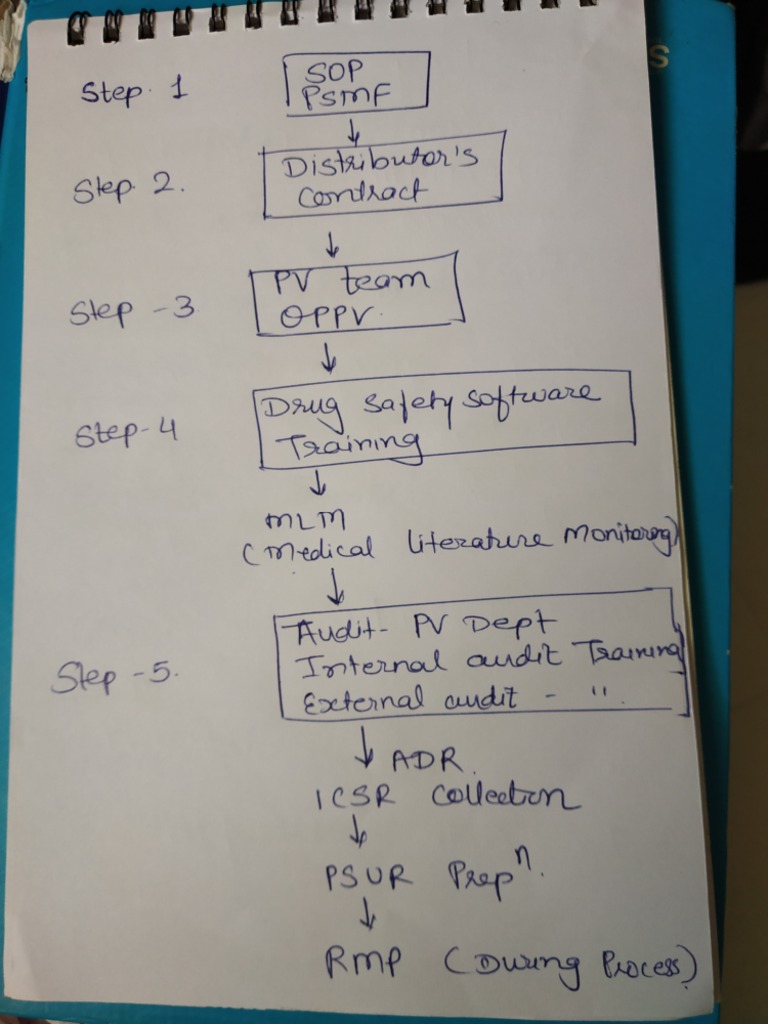 S
Step. 1
SOP
PSMF
Step 2.
Distributor's
contract
Step -3
PV team
OPPV.
Step-4
Drug safety software
Training
MLM
(Medical literature Monitoring)
Step -5.
Audit- PV Dept
Internal audit Training
External audit - "
ADR.
ICSR Collection
PSUR Prepⁿ.
RMP (During Process)